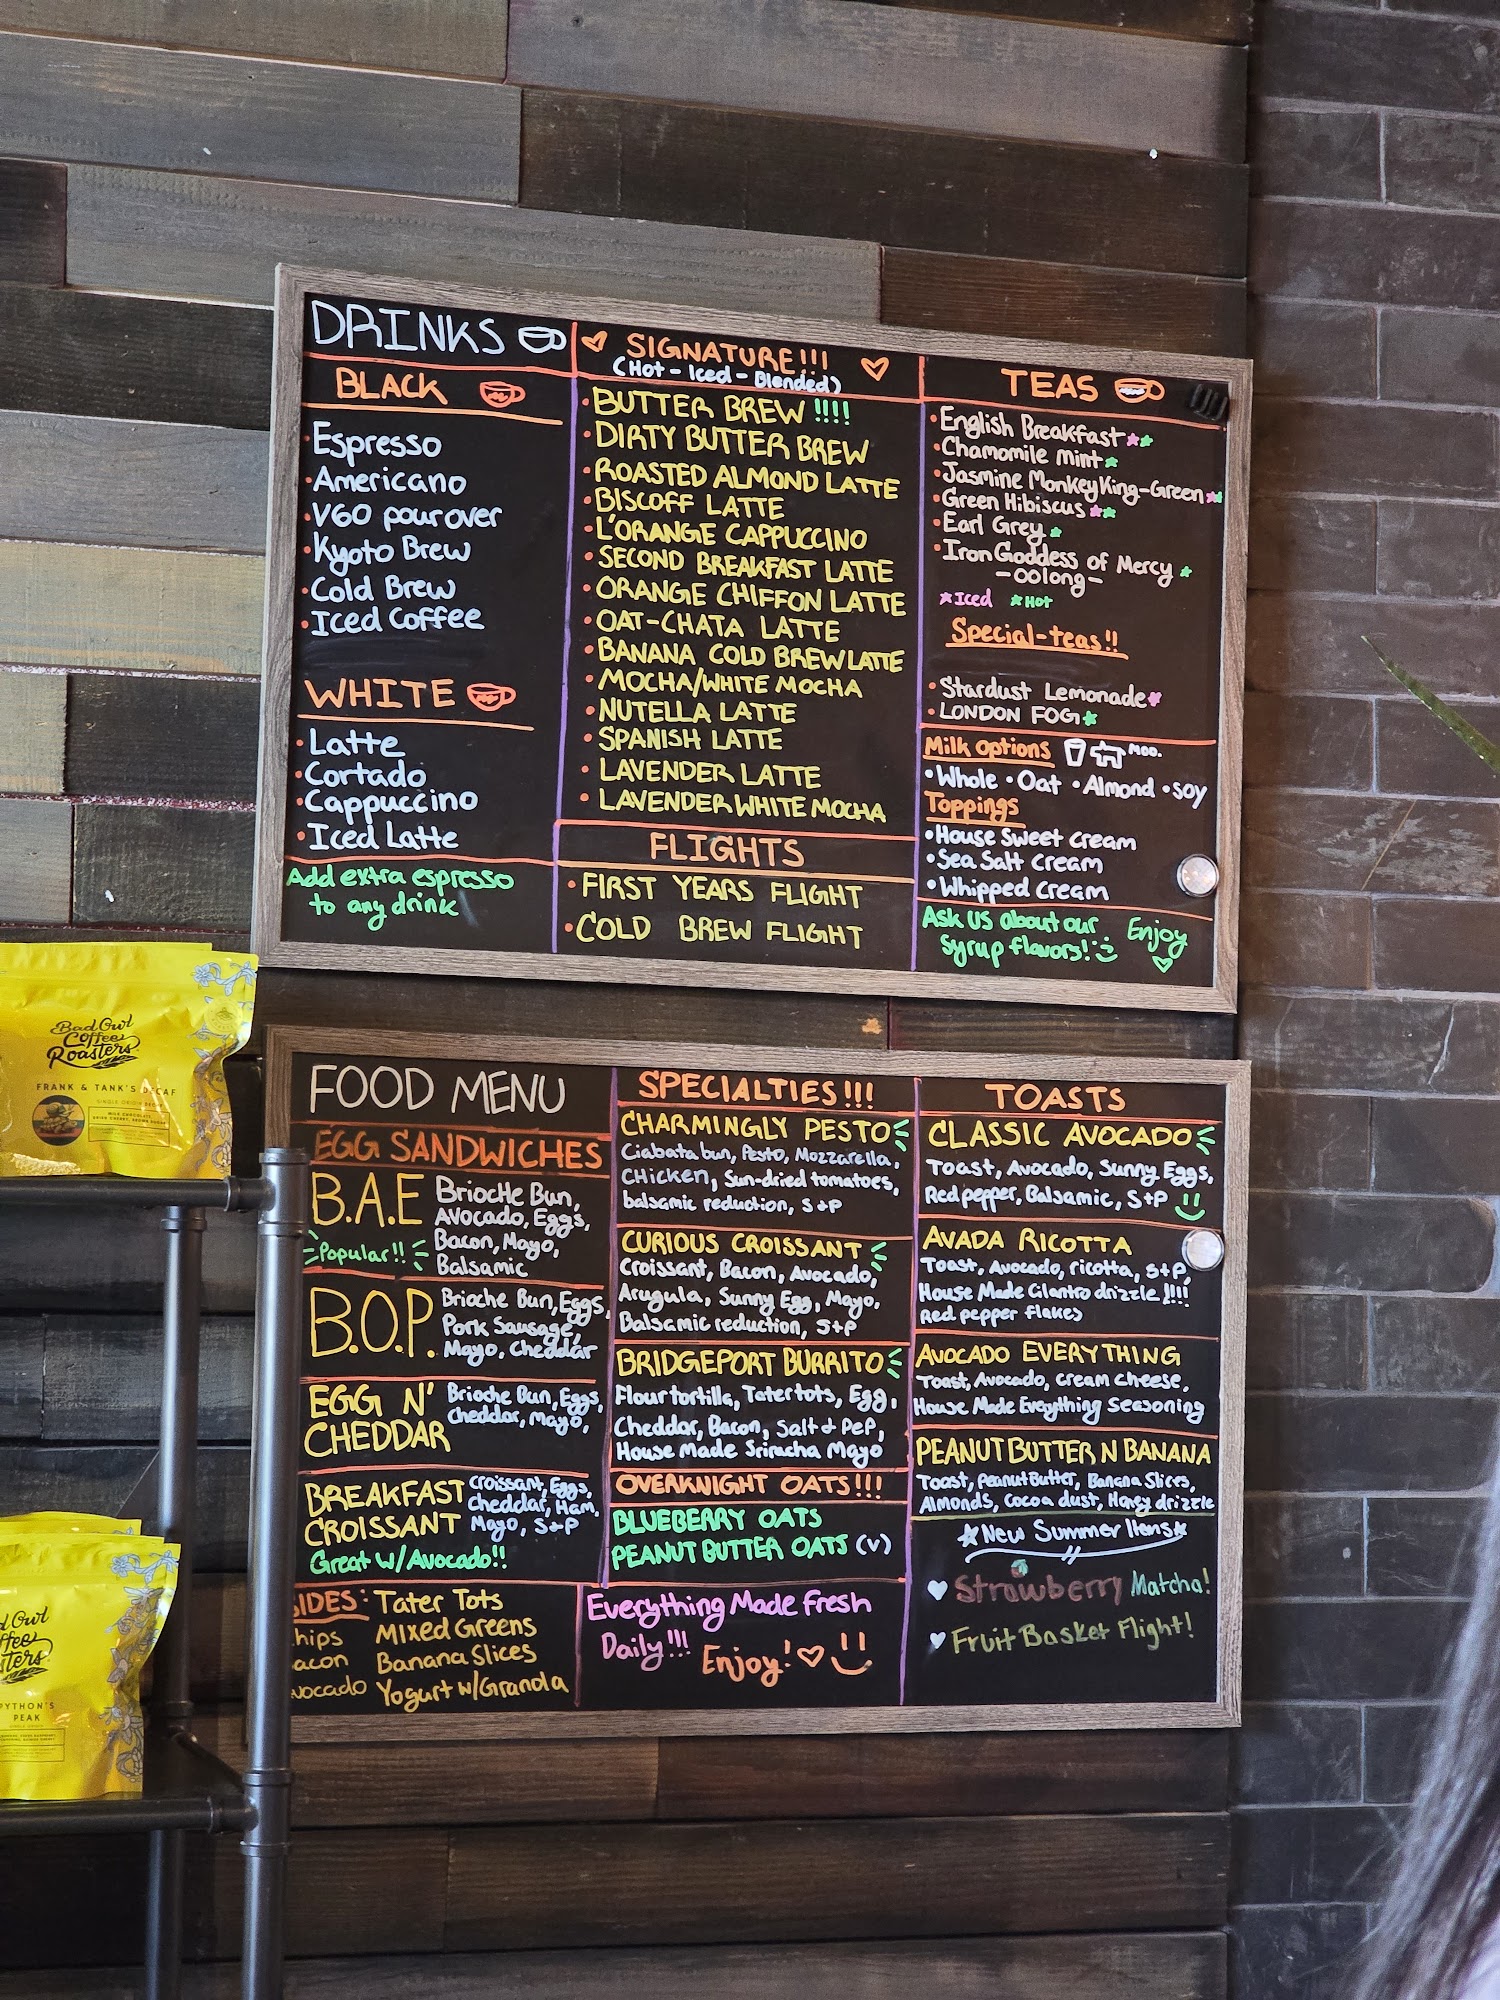 DRINKS
BLACK
• Espresso
• Americano
• V60 pour over
• Kyoto Brew
• Cold Brew
• Iced Coffee
WHITE
• Latte
• Cortado
• Cappuccino
• Iced Latte
Add extra espresso
to any drink
SIGNATURE!!!
(Hot - Iced - Blended)
• BUTTER BREW !!!!
• DIRTY BUTTER BREW
• ROASTED ALMOND LATTE
• BISCOFF LATTE
• L'ORANGE CAPPUCCINO
• SECOND BREAKFAST LATTE
• ORANGE CHIFFON LATTE
• OAT-CHATA LATTE
• BANANA COLD BREW LATTE
• MOCHA/WHITE MOCHA
• NUTELLA LATTE
• SPANISH LATTE
• LAVENDER LATTE
• LAVENDER WHITE MOCHA
FLIGHTS
• FIRST YEARS FLIGHT
• COLD BREW FLIGHT
TEAS
• English Breakfast
• Chamomile mint
• Jasmine Monkey King-Green
• Green Hibiscus
• Earl Grey
• Iron Goddess of Mercy
-oolong-
Iced Hot
Special-teas!!
• Stardust Lemonade
• LONDON FOG
Milk options Moo.
• Whole • Oat • Almond • soy
Toppings
• House Sweet cream
• Sea Salt cream
• Whipped cream
Ask us about our
syrup flavors!
Enjoy
FOOD MENU
EGG SANDWICHES
B.A.E
Popular!!
Brioche Bun,
Avocado, Eggs,
Bacon, Mayo,
Balsamic
B.O.P.
Brioche Bun, Eggs,
Pork Sausage,
Mayo, cheddar
EGG N'
CHEDDAR
Brioche Bun, Eggs,
cheddar, mayo,
BREAKFAST
CROISSANT
croissant, Eggs,
cheddar, Ham,
Mayo, S+P
Great w/Avocado!!
SIDES: Tater Tots
hips Mixed Greens
acon Banana Slices
vocado Yogurt w/Granola
SPECIALTIES!!!
CHARMINGLY PESTO
Ciabata bun, Pesto, Mozzarella,
CHicken, Sun-dried tomatoes,
balsamic reduction, S+P
CURIOUS CROISSANT
Croissant, Bacon, Avocado,
Arugula, Sunny Egg, Mayo,
Balsamic reduction, S+P
BRIDGEPORT BURRITO
Flour tortilla, Tater tots, Egg,
Cheddar, Bacon, Salt & PeP,
House Made Sriracha Mayo
OVERKNIGHT OATS!!!
BLUEBERRY OATS
PEANUT BUTTER OATS (V)
Everything Made Fresh
Daily!!! Enjoy!
TOASTS
CLASSIC AVOCADO
Toast, Avocado, Sunny Eggs,
Red pepper, Balsamic, S+P
AVADA RICOTTA
Toast, Avocado, ricotta, S+P,
House Made Cilantro drizzle !!!!
Red pepper flakes
AVOCADO EVERYTHING
Toast, Avocado, cream cheese,
House Made Everything seasoning
PEANUT BUTTER N BANANA
Toast, Peanut Butter, Banana Slices,
Almonds, cocoa dust, Honey drizzle
New Summer Items
Strawberry Matcha!
Fruit Basket Flight!
Bad Owl
Coffee
Roasters
FRANK & TANK'S DECAF
d Owl
ffee
sters
PYTHON'S
PEAK